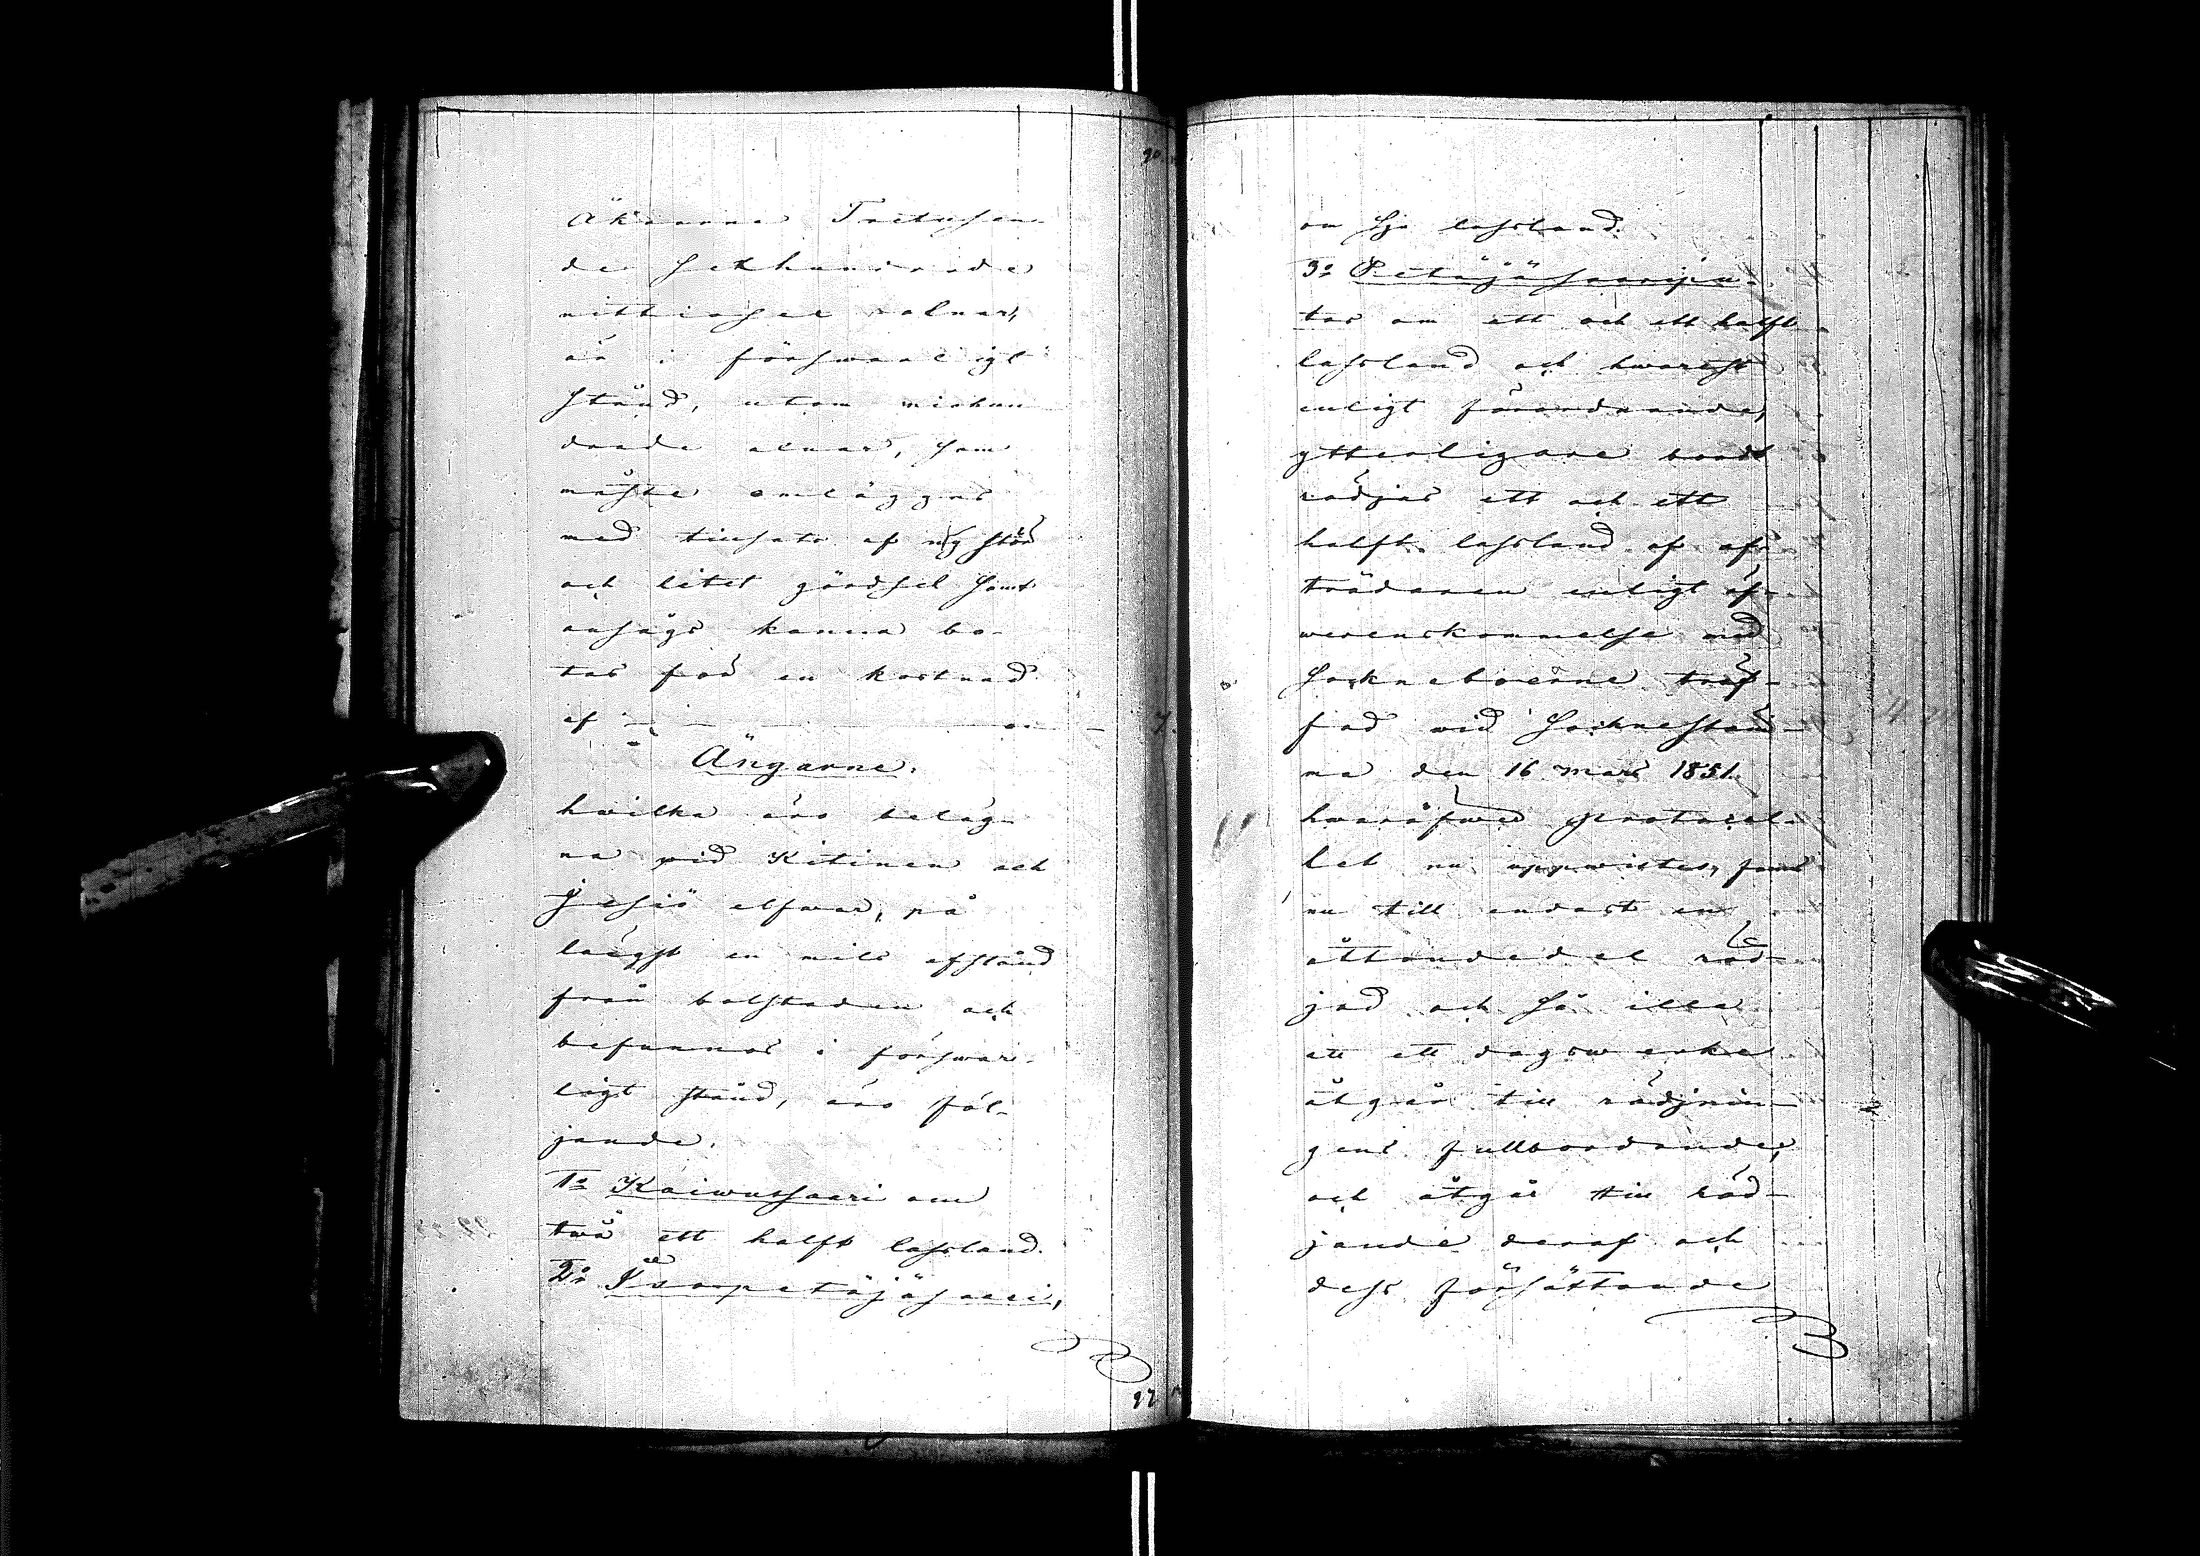 90.
Åkrarne Tretusen
de sexhundrade
nittiosex alnar,
är i förswarligt
stånd, utom niohun
drade alnar, som
måste omläggas
med tillsats af ny stör
och litet gärdsel samt
ansågs kunna bo-
tas för en kostnad
af — — — — — 7.
Ängarne.
hwilka äro beläg-
na wid Kitinen och
Jesiö elfwar, på
längst en mils afstånd
från bolstaden och
befunnos i förswar-
ligt stånd, äro föl-
jande.
1o Kaiwussaari om
twå ett halft lassland.
2o Isopetäjäsaari,
97
om sju lassland.
3o Petäjäsaaripu-
tas om ett och ett halft
lassland och hwarest
enligt förordnande,
ytterligare bordt
rödjas ett och ett
halft lassland af af-
trädaren enligt öf-
werenskommelse med
Sockneboerne träf-
fad wid Socknestäm-
na den 16 Mars 1851.
hwaröfwer protocol-
let nu uppwistes, fans
nu till endast en
åttondedel röd-
jad och så illa
att ett dagswerke
åtgår till rödjnin-
gens fullbordande,
och åtgår till röd-
jande deraf och
dess försättande
2